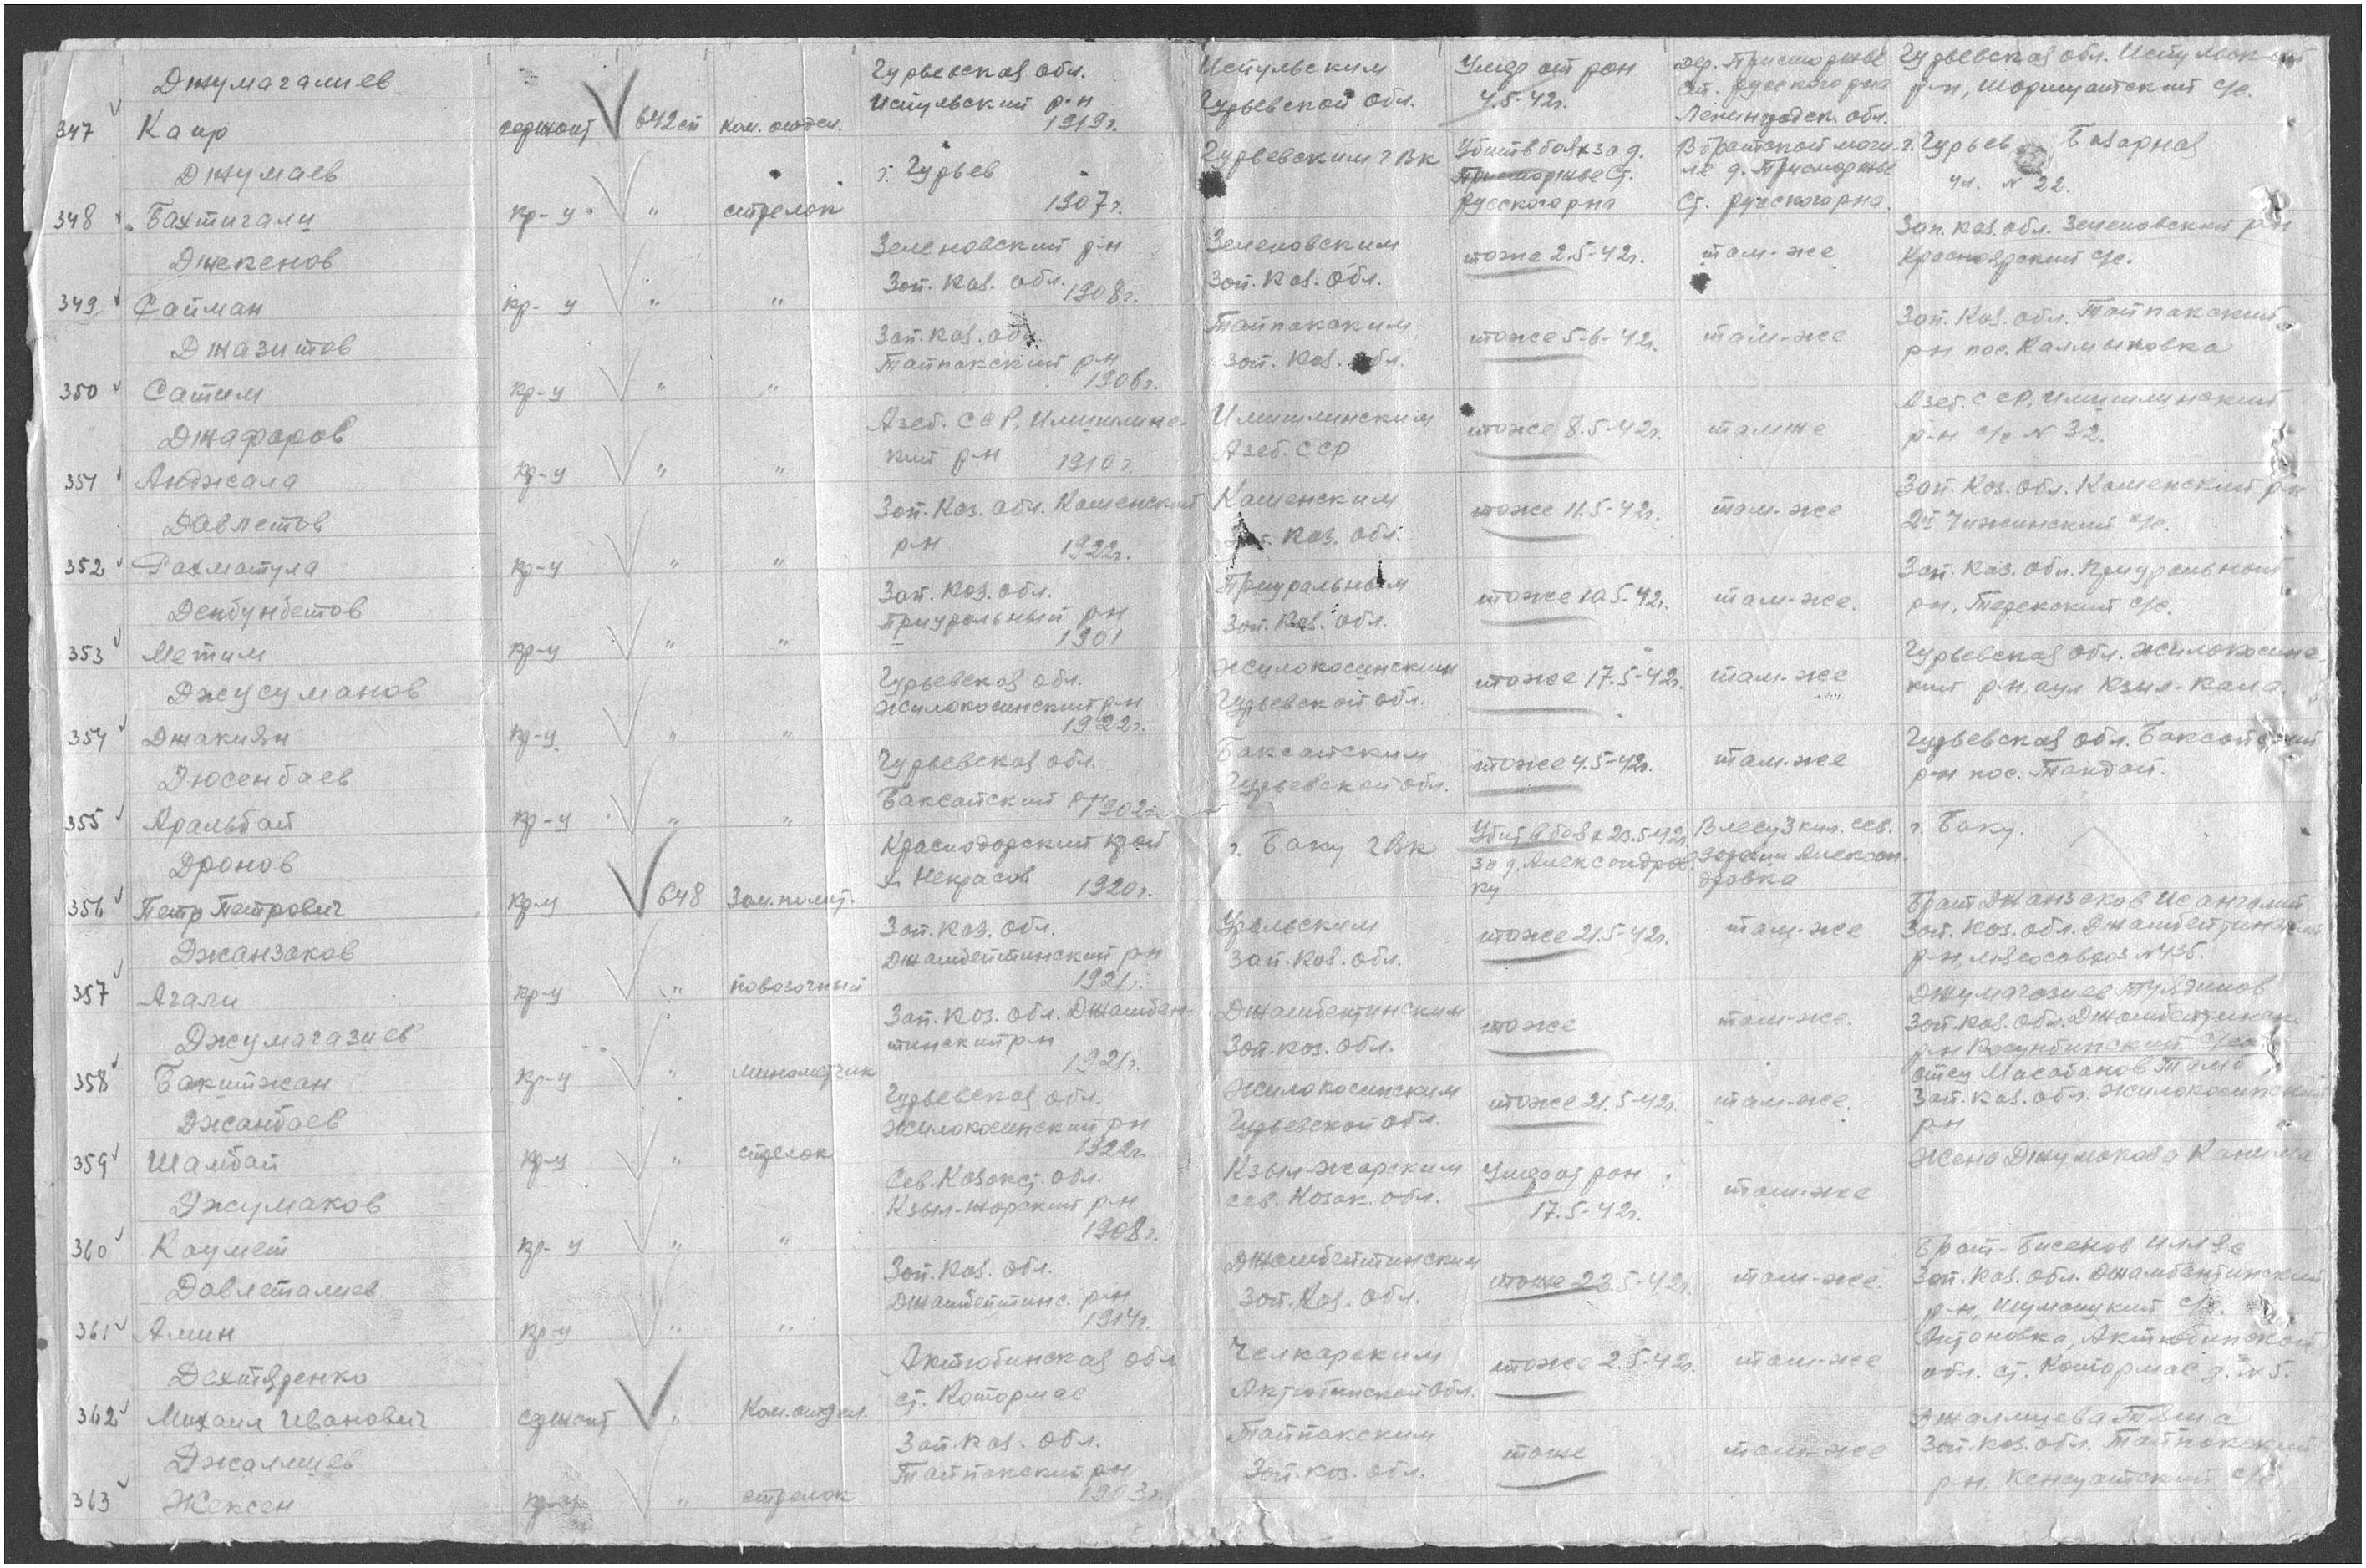 Джумагалиев
347 Каир сержант 642 сп ком. отдел. Гурьевская обл. Испульский р-н 1919г. Испульским Гурьевской обл. Умер от ран 4.5-42г. дер. Присморжье Ст. русского р-на Ленинградск. обл. Гурьевская обл. Испульский р-н, с/с.
Джумаев
348 Бахтигали кр-ц " стрелок г. Гурьев 1907г. Гурьевским ГВК Убит в боях за д. Присморжье Ст. русского р-на В братской моги-ле д. Присморжье Ст. русского р-на. г. Гурьев Базарная ул. № 22.
Джекенов
349 Сайман кр-ц " " Зеленовский р-н Зап. Каз. обл. 1908г. Зеленовским Зап. Каз. обл. тоже 2.5-42г. там-же Зап. Каз. обл. Зеленовский р-н Красноярский с/с.
Джазитов
350 Сатим кр-ц " " Зап. Каз. обл. Тайпакский р-н 1906г. Тайпакским Зап. Каз. обл. тоже 5-6-42г. там-же Зап. Каз. обл. Тайпакский р-н пос. Калмыковка
Джафаров
351 Анджала кр-ц " " Азеб. ССР, Имишлинс-кий р-н 1910г. Имишлинским Азеб. ССР тоже 8.5-42г. там же Азеб. ССР, Имишлинский р-н с/с № 32.
Давлетов
352 Рахматула кр-ц " " Зап. Каз. обл. Каменский р-н 1922г. Каменским Зап. Каз. обл. тоже 11.5-42г. там-же Зап. Каз. обл. Каменский р-н 2й Чижинский с/с.
Денбунбетов
353 Метим кр-ц " " Зап. Каз. обл. Приуральный р-н 1901 Приуральным Зап. Каз. обл. тоже 10.5-42г. там-же. Зап. Каз. обл. Приуральный р-н, Терекский с/с.
Джусуманов
354 Джакиян кр-ц " " Гурьевская обл. Жилокосинский р-н 1922г. Жилокосинским Гурьевской обл. тоже 17.5-42г. там-же Гурьевская обл. Жилокосинс-кий р-н, аул Кзыл-Кала.
Дюсенбаев
355 Аральбай кр-ц " " Гурьевская обл. Баксайский р-н 1902г. Баксайским Гурьевской обл. тоже 4.5-42г. там-же Гурьевская обл. Баксайский р-н пос. Тандай.
Дронов
356 Петр Петрович кр-ц 648 Зам. полит. Краснодарский край х. Некрасов 1920г. г. Баку ГВК Убит в боях 23.5-42г. за д. Александров-ку В лесу 3 клм. сев. Алексан-дровка г. Баку.
Джанзаков
357 Агали кр-ц " повозочный Зап. Каз. обл. Джамбейтинский р-н 1921г. Уральским Зап. Каз. обл. тоже 21.5-42г. там-же Брат Джанзаков Исангалий Зап. Каз. обл. Джамбейтинский р-н, мясосовхоз №435.
Джумагазиев
358 Бакитжан кр-ц " минометчик Зап. Каз. обл. Джамбей-тинский р-н 1921г. Джамбейтинским Зап. Каз. обл. тоже там-же. Джумагазиев Зап. Каз. обл. Джамбейтинск. р-н
Джанбаев
359 Шамбай кр-ц " стрелок Гурьевская обл. Жилокосинский р-н 1922г. Жилокосинским Гурьевской обл. тоже 21.5-42г. там-же. отец Масабанов Зап. Каз. обл. Жилокосинский р-н
Джумаков
360 Каумет кр-ц " " Сев. Казакст. обл. Кзыл-жарский р-н 1908г. Кзыл-жарским Сев. Казак. обл. Умер от ран 17.5-42г. там-же Жена Джумакова
Давлеталиев
361 Амин кр-ц " " Зап. Каз. обл. Джамбейтинс. р-н 1914г. Джамбейтинским Зап. Каз. обл. тоже 23.5-42г. там-же. Брат-Бисенов Зап. Каз. обл. Джамбейтинский р-н, с/с.
Дехтяренко
362 Михаил Иванович сержант " Ком. отдел. Актюбинская обл ст. Котормас Челкарским Актюбинской обл. тоже 2.5-42г. там-же Антоновка, Актюбинской обл. ст. Котормас д. №5.
Джалмиев
363 Жексен кр-ц " стрелок Зап. Каз. обл. Тайпакский р-н 1903г. Тайпакским Зап. Каз. обл. тоже там-же Джалмиева Зап. Каз. обл. Тайпакский р-н. с/с